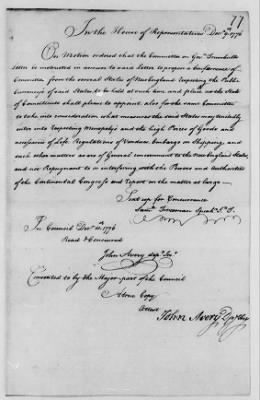 77
In the House of Representatives Decr 9th 1776
On Motion ordered that the Committee on Govr Trumbulls
letter be instructed in answer to said Letter to propose a Conference of
Committees from the several States of New England respecting the Public
Currency of said States to be held at such time and place as the State
of Connecticutt shall please to appoint, also for the same Committee
to take into consideration what measures the said States may suitably
enter into Respecting Monopolys and the high Prices of Goods and
necessaries of Life. Regulations of Vendues, Embargo on Shipping, and
such other matters as are of General concernment to the New England States,
and not Repugnant to or interfering with the Powers and Authorities
of the Continental Congress and report on the matter at large
Sent up for Concurrence
Saml Freeman Speakr P.T.
In Council Decr 10 1776
Read & Concurred
John Avery dpy Secy
Consented to by the Major part of the Council
A true Copy
Attest
John Avery Dpy Secy